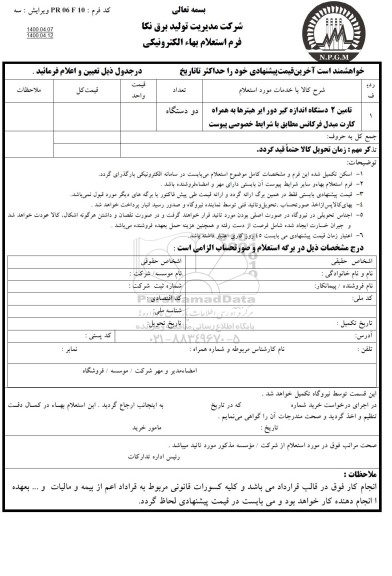 بسمه تعالی
کد فرم : PR 06 F 10 ویرایش : سه
1400.04.07
1400.04.12
شرکت مدیریت تولید برق نکا
فرم استعلام بهاء الکترونیکی
N.P.G.M
خواهشمند است آخرین قیمت پیشنهادی خود را حداکثر تا تاریخ درجدول ذیل تعیین و اعلام فرمائید .
ردیف شرح کالا یا خدمات مورد استعلام تعداد قیمت واحد قیمت کل ملاحظات
۱ تامین ۲ دستگاه اندازه گیر دور ایر هیترها به همراه کارت مبدل فرکانس مطابق با شرایط خصوصی پیوست دو دستگاه
جمع کل به حروف:
تذکر مهم : زمان تحویل کالا حتماً قید گردد.
توضیحات:
۱- اسکن تکمیل شده این فرم و مشخصات کامل موضوع استعلام می‌بایست در سامانه الکترونیکی بارگذاری گردد.
۲- فرم استعلام بهاء و سایر شرایط پیوست آن بایستی دارای مهر و امضاء فروشنده باشد .
۳- قیمت پیشنهادی بایستی فقط در همین برگه ارائه گردد و ارائه قیمت طی پیش فاکتور یا برگه های دیگر مورد قبول نمی‌باشد.
۴- بهای کالا پس از اخذ صورتحساب ،تحویل و تائید فنی توسط نماینده نیروگاه و صدور رسید انبار پرداخت خواهد شد .
۵- اجناس تحویلی در نیروگاه در صورت اصلی بودن مورد تائید قرار خواهند گرفت و در صورت نقصان و داشتن هرگونه اشکال، کالا عودت خواهد شد و جبران خسارت ایجاد شده شامل فرصت از دست رفته و همچنین هزینه حمل بعهده فروشنده می‌باشد .
۶- اعتبار زمان قیمت پیشنهادی می بایست ۱۵ روز کاری اعتبار داشته باشد.
درج مشخصات ذیل در برگه استعلام و صورتحساب الزامی است :
اشخاص حقیقی اشخاص حقوقی
نام و نام خانوادگی : نام موسسه / شرکت :
نام فروشنده / پیمانکار: شماره ثبت شرکت :
کد ملی: کد اقتصادی :
شناسه ملی:
تاریخ تکمیل : تاریخ تحویل :
آدرس: کد پستی :
تلفن : نام کارشناس مربوطه و شماره همراه : نمابر :
امضاء مدیر و مهر شرکت / موسسه / فروشگاه
ParsNamadData
۰۲۱-۸۸۳۴۹۶۷۰-۵
این قسمت توسط نیروگاه تکمیل خواهد شد .
در اجرای درخواست خرید شماره که در تاریخ به اینجانب ارجاع گردید . این استعلام بهاء در کمال دقت تنظیم و اخذ گردید و صحت مندرجات آن را گواهی می‌نمایم .
تاریخ : مامور خرید
صحت مراتب فوق در مورد استعلام از شرکت / مؤسسه مذکور مورد تائید میباشد .
رئیس اداره تدارکات
ملاحظات :
انجام کار فوق در قالب قرارداد می باشد و کلیه کسورات قانونی مربوط به قراداد اعم از بیمه و مالیات و ... بعهده
انجام دهنده کار خواهد بود و می بایست در قیمت پیشنهادی لحاظ گردد.